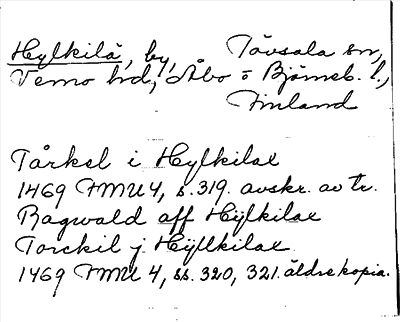 Hylkilä, by, Tövsala sn,
Vemo hd, Åbo o Björneb. l.,
Finland
Tårkel i Hylkilax
1469 FMU 4, s. 319. avskr. av tr.
Ragwald aff Hÿlkilax
Torckil j Hÿlkilax
1469 FMU 4, ss. 320, 321. äldre kopia.